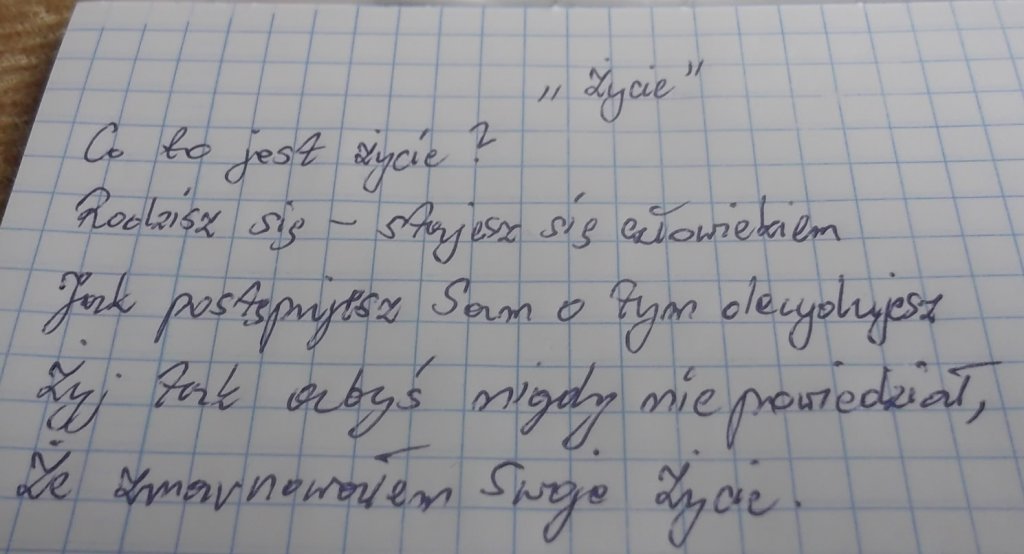 „Życie”
Co to jest życie?
Rodzisz się – stajesz się człowiekiem
Jak postępujesz Sam o tym decydujesz
Żyj tak abyś nigdy nie powiedział,
Że zmarnowałem Swoje Życie.